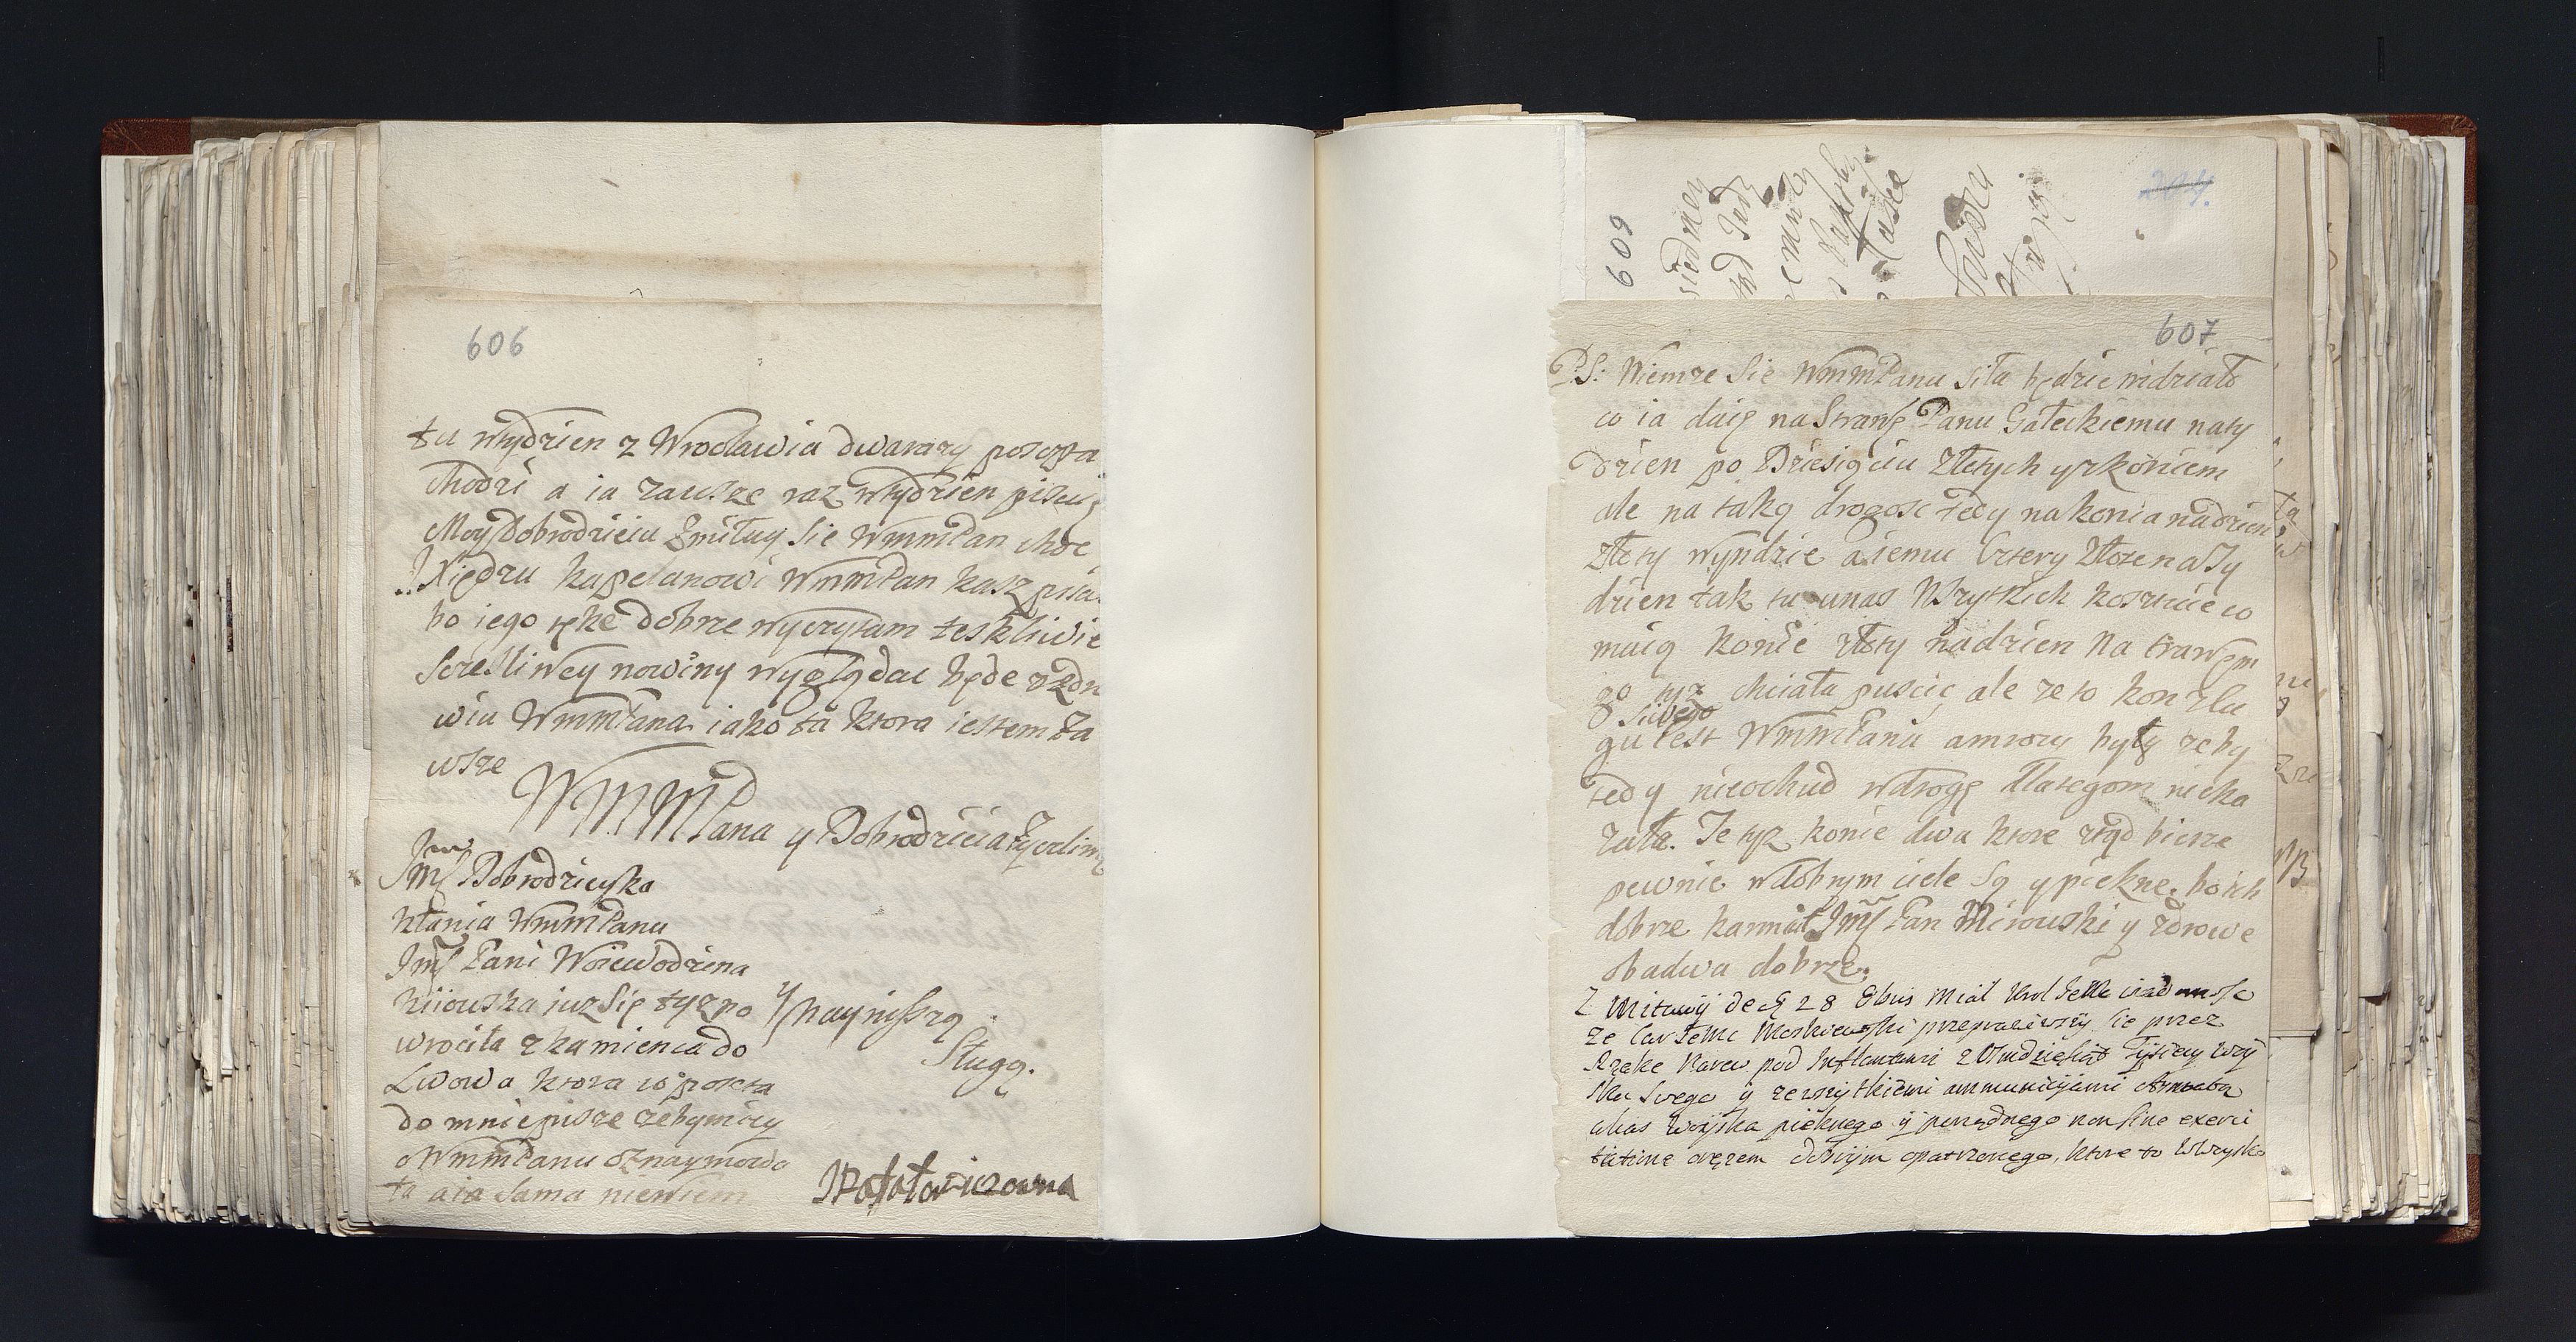 606
tu wtydzien z Wroclawia dwa razy poczta
chodzi a ia zawsze raz wtydzien pisuię
Moy Dobrodzieiu Zmiłuy Sie WmmPan choc
Xiędzu kapelanowi WmmPan kasz pisa
bo iego rękę dobrze wyczytam teskliwie
Szczesliwey nowiny wyglądac będe o zdro
wiu WmmPana iako ta ktora iestem Za
wsze
WMMPana y Dobrodzieia Zyczliwą
Jmć Dobrodzieyka
kłania WmmPanu
Jmć Pani Woiewodzina
kiiowska iuz Się tysz po
wrociła z kamienca do
Lwowa ktora co poczta
do mnie pisze zebym iey
o WmmPanu oznaymowa
ta a ia Sama niewiem
y nayniższą
Sługą.
JPotatowiczowna
609
607
P.S. Wiem ze Sie WmmPanu siła będzie widziało
co ia daię na Strawę Panu Gałeckiemu na ty
dzien po Dziesięciu Złotych y z koniem
ale na taką drogosc tedy na konia nadzien
złoty wyndzie a iemu Cztery Złote na Ty
dzien tak tu u nas Wszytkich kosztuie co
maią konie złoty nadzien Na trawęm
go tysz chciała puscic ale ze to kon z lu
Siwego
gu iest WmmPanu a mrozy były zeby
tedy nie ochud w drogę dla tegom nie ka
zała. Te tysz konie dwa ktore ztąd bierze
pewnie w dobrym ciele Są y piekne, bo ich
dobrze karmił Jmć Pan Mirowski y zdrowe
obadwa dobrze.
Z Mitawy de 28 8bris miał krol Jemc wiadomosc
ze Car Jemc Moskiewski przeprawiwszy Sie przez
Rzeke Narew pod Inflantami z Osmdziesiąt Tysiecy woy
ska Swego y ze wszytkiemi ammunicyami
alias woyska pieknego y porządnego non sine exerci
tatione orężem dobrym opatrzonego, ktore to wszystko